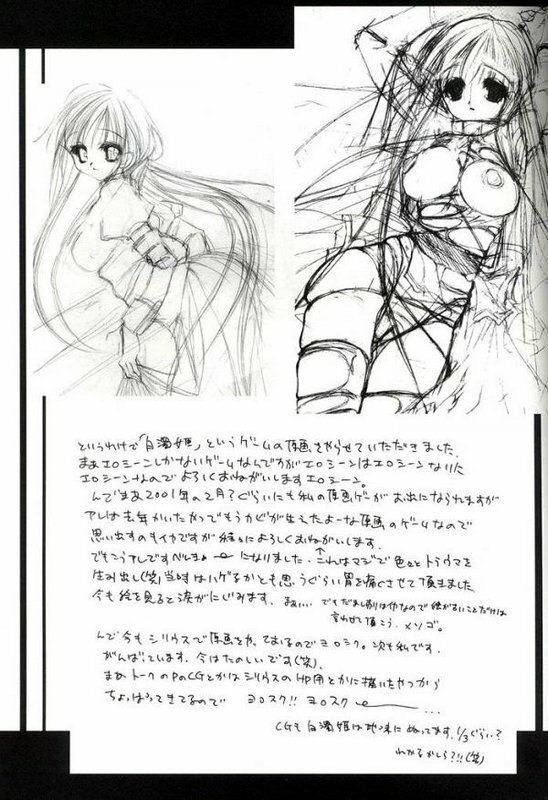 というわけで「白濁姫」というゲームの原画をやらせていただきました。
まぁエロシーンしかないゲームなんですがエロシーンはエロシーンなりに
エロシーンなのでよろしくおねがいしますエロシーン。
んでまぁ2001年の2月?ぐらいにも私の原画ゲーがお出になられますが
アレは去年かいたかつてもうカビが生えたよーな原画のゲームなので
思い出すのもイカですが絵だによろしくおねがいします。
でもこうアレですべ になりました。↑これはマジで色々とトラウマを
生み出し(笑)当時はハゲるかとも思うぐらい胃を痛ぐさせて頂きました
今も絵を見ると涙がにじみます。まぁ… でもだまし に なので絵がることだけは
言わせて頂こう。メソゴ。
んで今もシリウスで原画をや、ておるのでヨロシク。次も私です。
がんばっています。今はたのしいです(笑)。
まぁトークのPのCGとかはシリウスのHP用とかに描いたやつから
ちょっぱってきてるので ヨロスク!! ヨロスク ...
CGも白濁姫は地味にぬってます。1/3ぐらい?
わかるかしら?!!(笑)